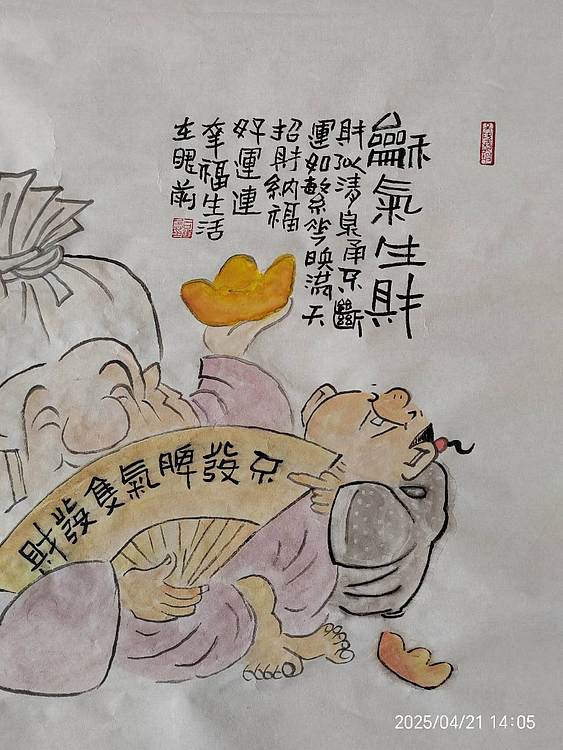 龢氣生財
財似清泉甬不斷
運如繁花映满天
招財納福
好運連
幸福生活
在眼前
不發脾氣隻發財
2025/04/21 14:05